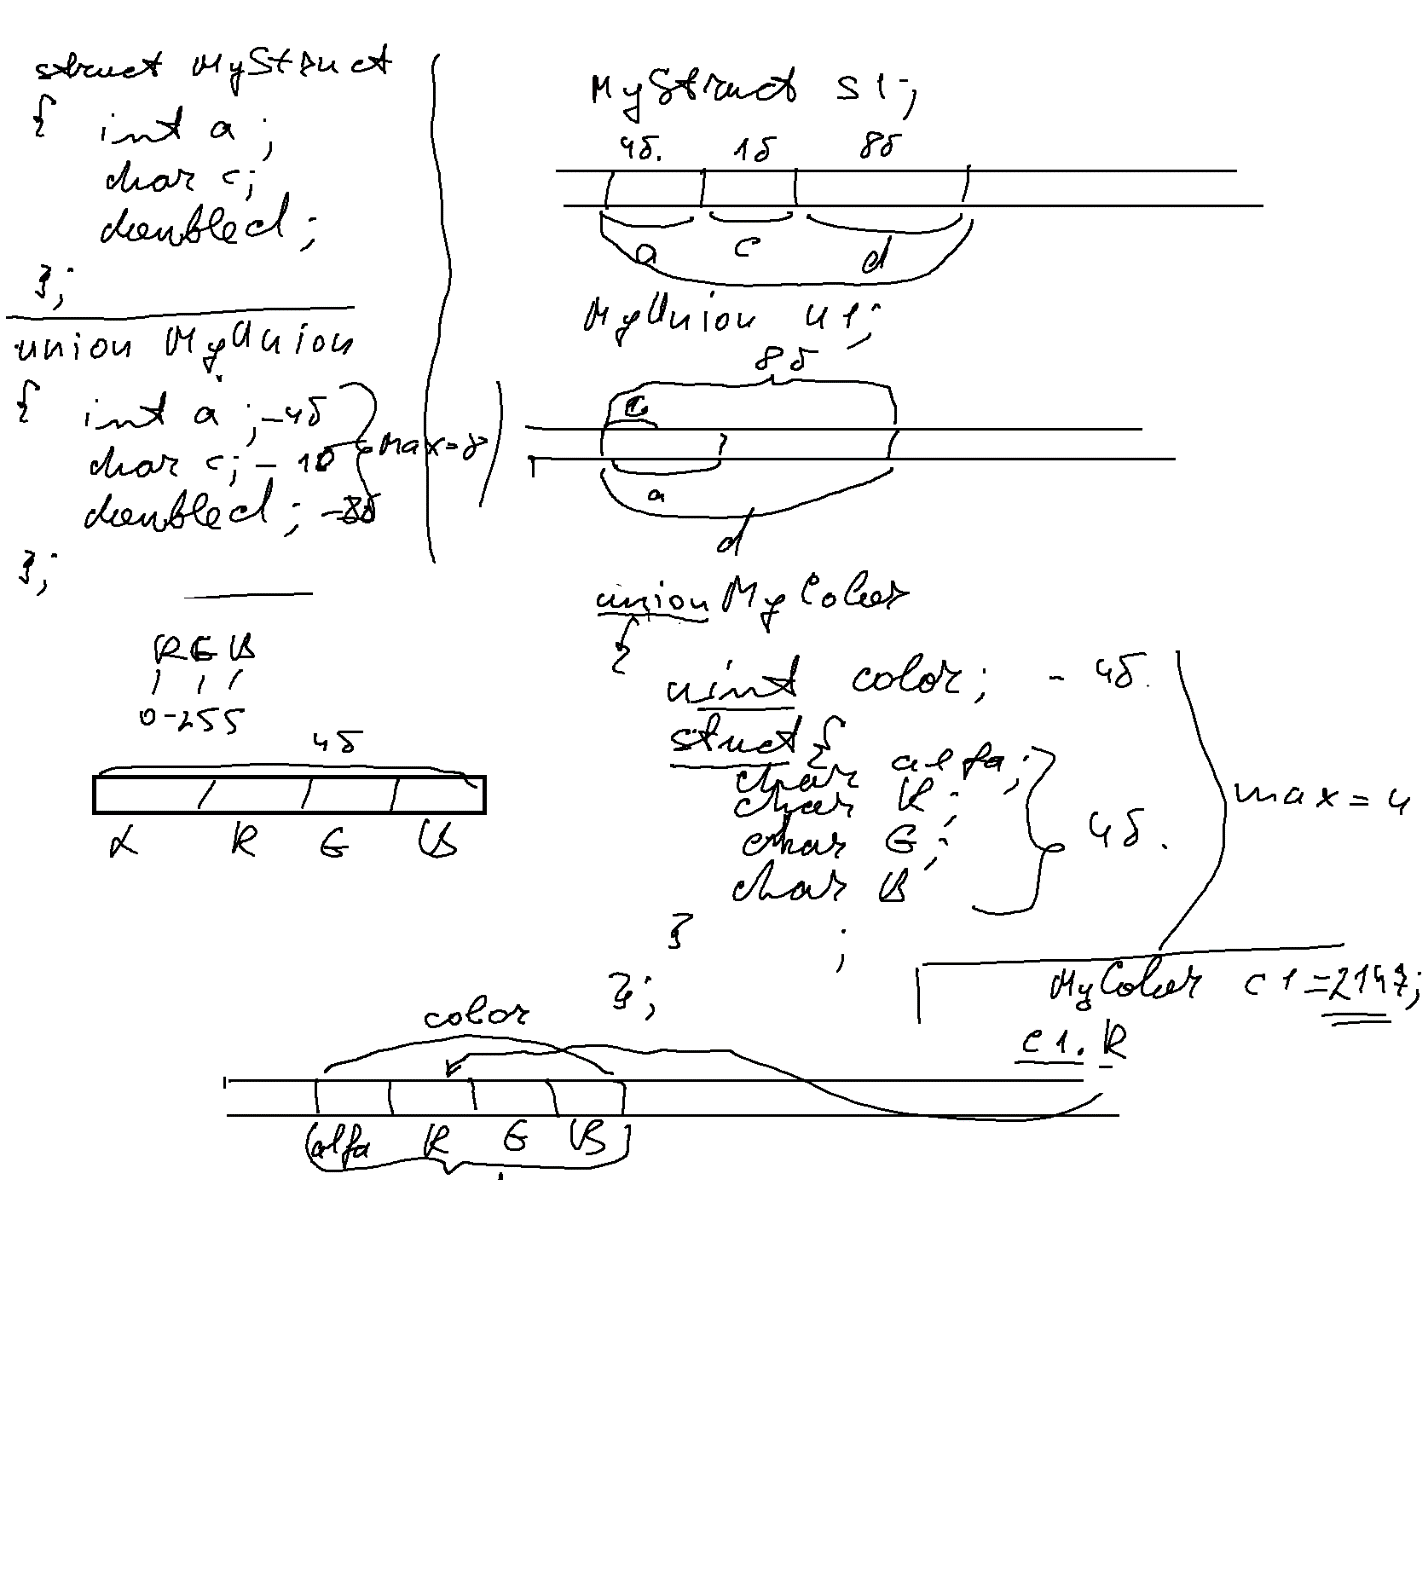 struct MyStruct
{ int a;
char c;
double d;
};
union MyUnion
{ int a; - 4б
char c; - 1б
double d; - 8б
};
max=8
MyStruct s1;
4б. 1б 8б
a c d
MyUnion u1;
8б
c
a
d
RGB
0-255
4б
α R G B
union MyColor
{
uint color; - 4б.
struct {
char alfa;
char R;
char G;
char B
}
;
};
4б.
max = 4
MyColor c1=2147;
c1.R
color
alfa R G B